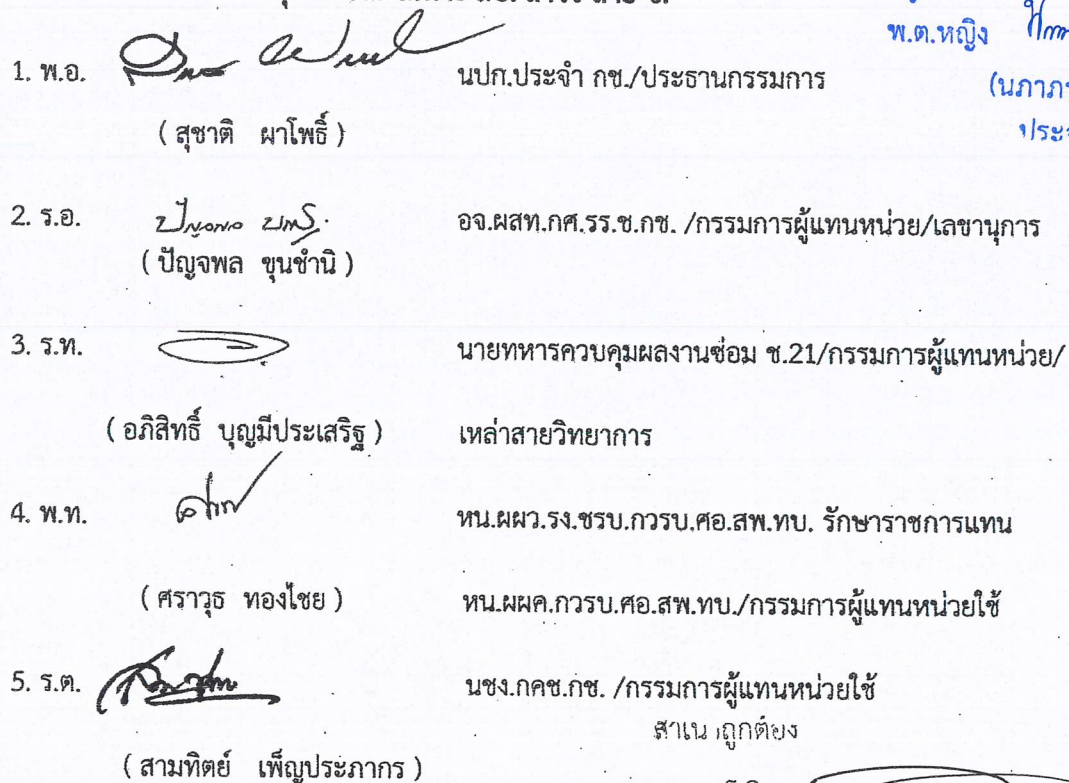 พ.ต.หญิง
1. พ.อ. นปก.ประจำ กช./ประธานกรรมการ
( สุชาติ ผาโพธิ์ )
2. ร.อ. อจ.ผสท.กศ.รร.ช.กช. /กรรมการผู้แทนหน่วย/เลขานุการ
( ปัญจพล ขุนชำนิ )
3. ร.ท. นายทหารควบคุมผลงานซ่อม ช.21/กรรมการผู้แทนหน่วย/
( อภิสิทธิ์ บุญมีประเสริฐ ) เหล่าสายวิทยาการ
4. พ.ท. หน.ผผว.รง.ซรบ.กวรบ.ศอ.สพ.ทบ. รักษาราชการแทน
( ศราวุธ ทองไชย ) หน.ผผค.กวรบ.ศอ.สพ.ทบ./กรรมการผู้แทนหน่วยใช้
5. ร.ต. นชง.กคช.กช. /กรรมการผู้แทนหน่วยใช้
สำเนาถูกต้อง
( สามทิตย์ เพ็ญประภากร )